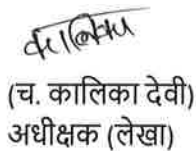 कालिका
(च. कालिका देवी)
अधीक्षक (लेखा)